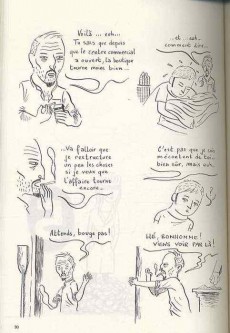 Voilà ... euh...
Tu sais que depuis
que le centre commercial
a ouvert, la boutique
tourne moins bien...
...et ...euh...
comment dire...
...Va falloir que
je restructure
un peu les choses
si je veux que
l'affaire tourne
encore...
C'est pas que je sois
mécontent de toi...
bien sûr, mais euh...
Attends, bouge pas!
HÉ, BONHOMME!
VIENS VOIR PAR LÀ!